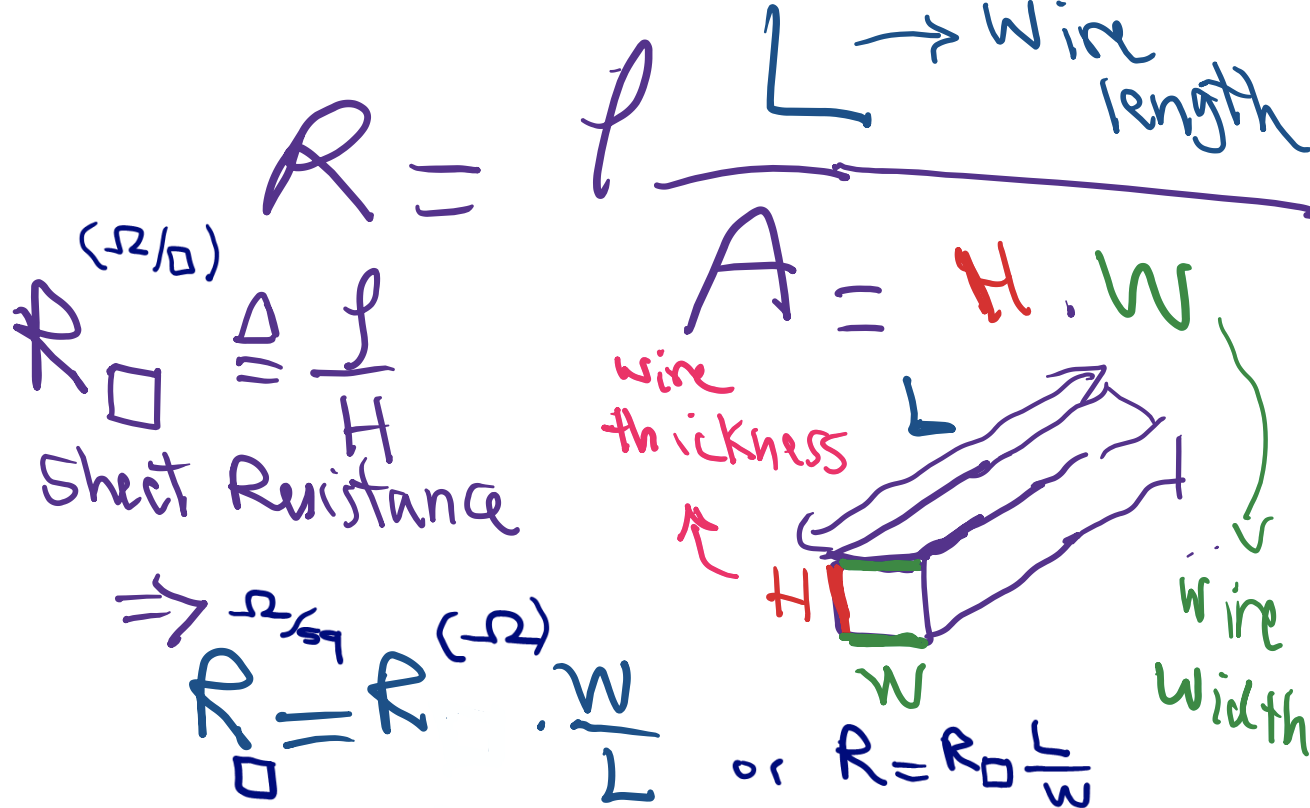 L → Wire
length
R = ρ
A = H · W
(Ω/□)
R□ ≜ ρ/H
Sheet Resistance
wire
thickness
L
H
W
wire
width
⇒ Ω/sq (Ω)
R□ = R · W/L
or R = R□ L/W